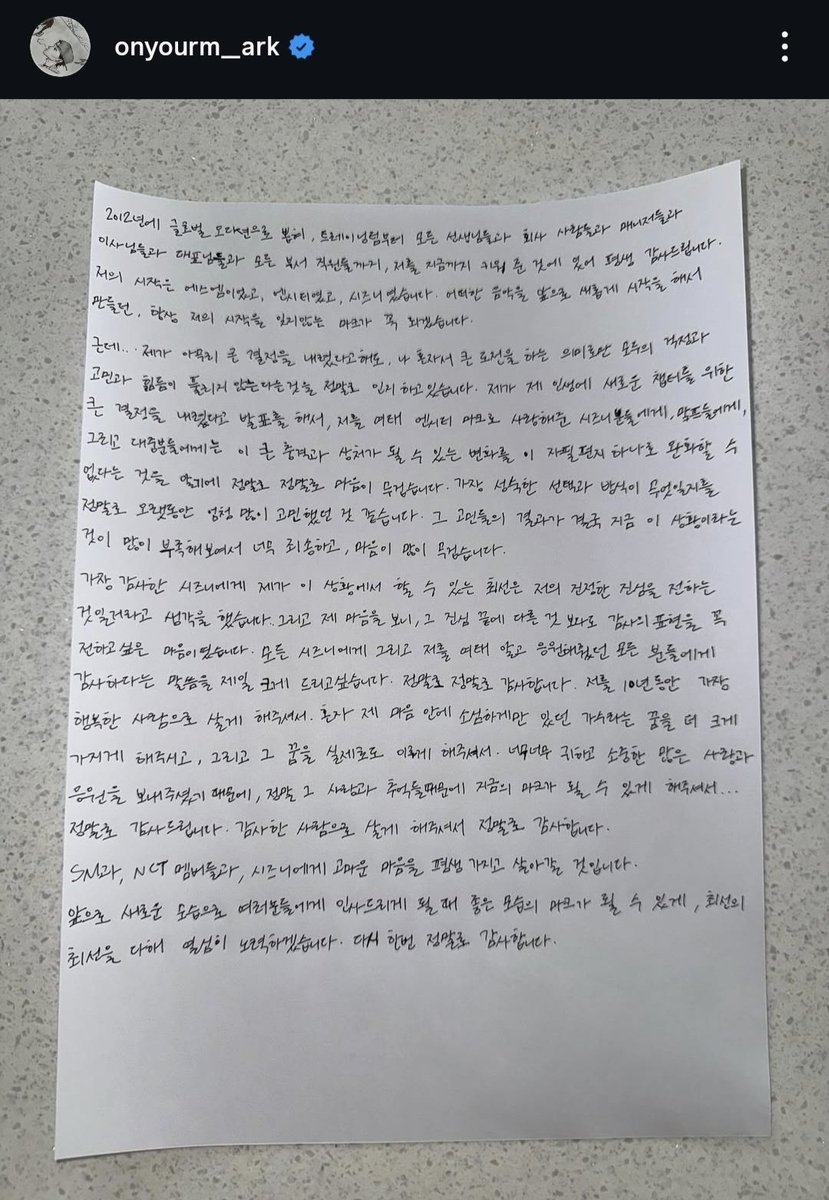 onyourm__ark
2012년에 글로벌 오디션으로 뽑혀, 트레이닝팀부터 모든 선생님들과 회사 사람들과 매니저들과
이사님들과 대표님들과 모든 부서 직원들까지, 저를 지금까지 키워 준 것에 있어 평생 감사드립니다.
저의 시작은 에스엠이었고, 엔시티였고, 시즈니였습니다. 어떠한 음악을 앞으로 새롭게 시작을 해서
만들던, 항상 저의 시작을 잊지않는 마크가 꼭 되겠습니다.
근데.. 제가 아무리 큰 결정을 내렸다고해도, 나 혼자서 큰 도전을 하는 의미로만 모두의 걱정과
고민과 힘듦이 풀리지 않는다는것을 정말로 인지하고있습니다. 제가 제 인생에 새로운 챕터를 위한
큰 결정을 내렸다고 발표를 해서, 저를 여태 엔시티 마크로 사랑해준 시즈니분들에게, 맠프들에게,
그리고 대중분들에게는 이 큰 충격과 상처가 될 수 있는 변화를 이 자필편지 하나로 완화할 수
없다는 것을 알기에 정말로 정말로 마음이 무겁습니다. 가장 성숙한 선택과 방식이 무엇일지를
정말로 오랫동안 엄청 많이 고민했던 것 같습니다. 그 고민들의 결과가 결국 지금 이 상황이라는
것이 많이 부족해보여서 너무 죄송하고, 마음이 많이 무겁습니다.
가장 감사한 시즈니에게 제가 이 상황에서 할 수 있는 최선은 저의 온전한 진심을 전하는
것일거라고 생각을 했습니다. 그리고 제 마음을 보니, 그 진심 끝에 다른 것 보다도 감사의 표현을 꼭
전하고싶은 마음이었습니다. 모든 시즈니에게 그리고 저를 여태 알고 응원해줬던 모든 분들에게
감사하다는 말씀을 제일 크게 드리고싶습니다. 정말로 정말로 감사합니다. 저를 10년동안 가장
행복한 사람으로 살게 해주셔서. 혼자 제 마음 안에 소심하게만 있던 가수라는 꿈을 더 크게
가지게 해주시고, 그리고 그 꿈을 실제로도 이루게 해주셔서. 너무너무 귀하고 소중한 많은 사랑과
응원을 보내주셨기 때문에, 정말 그 사랑과 추억들때문에 지금의 마크가 될 수 있게 해주셔서...
정말로 감사드립니다. 감사한 사람으로 살게 해주셔서 정말로 감사합니다.
SM과, NCT 멤버들과, 시즈니에게 고마운 마음을 평생 가지고 살아갈 것입니다.
앞으로 새로운 모습으로 여러분들에게 인사드리게 될 때 좋은 모습의 마크가 될 수 있게, 최선의
최선을 다해 열심히 노력하겠습니다. 다시 한번 정말로 감사합니다.